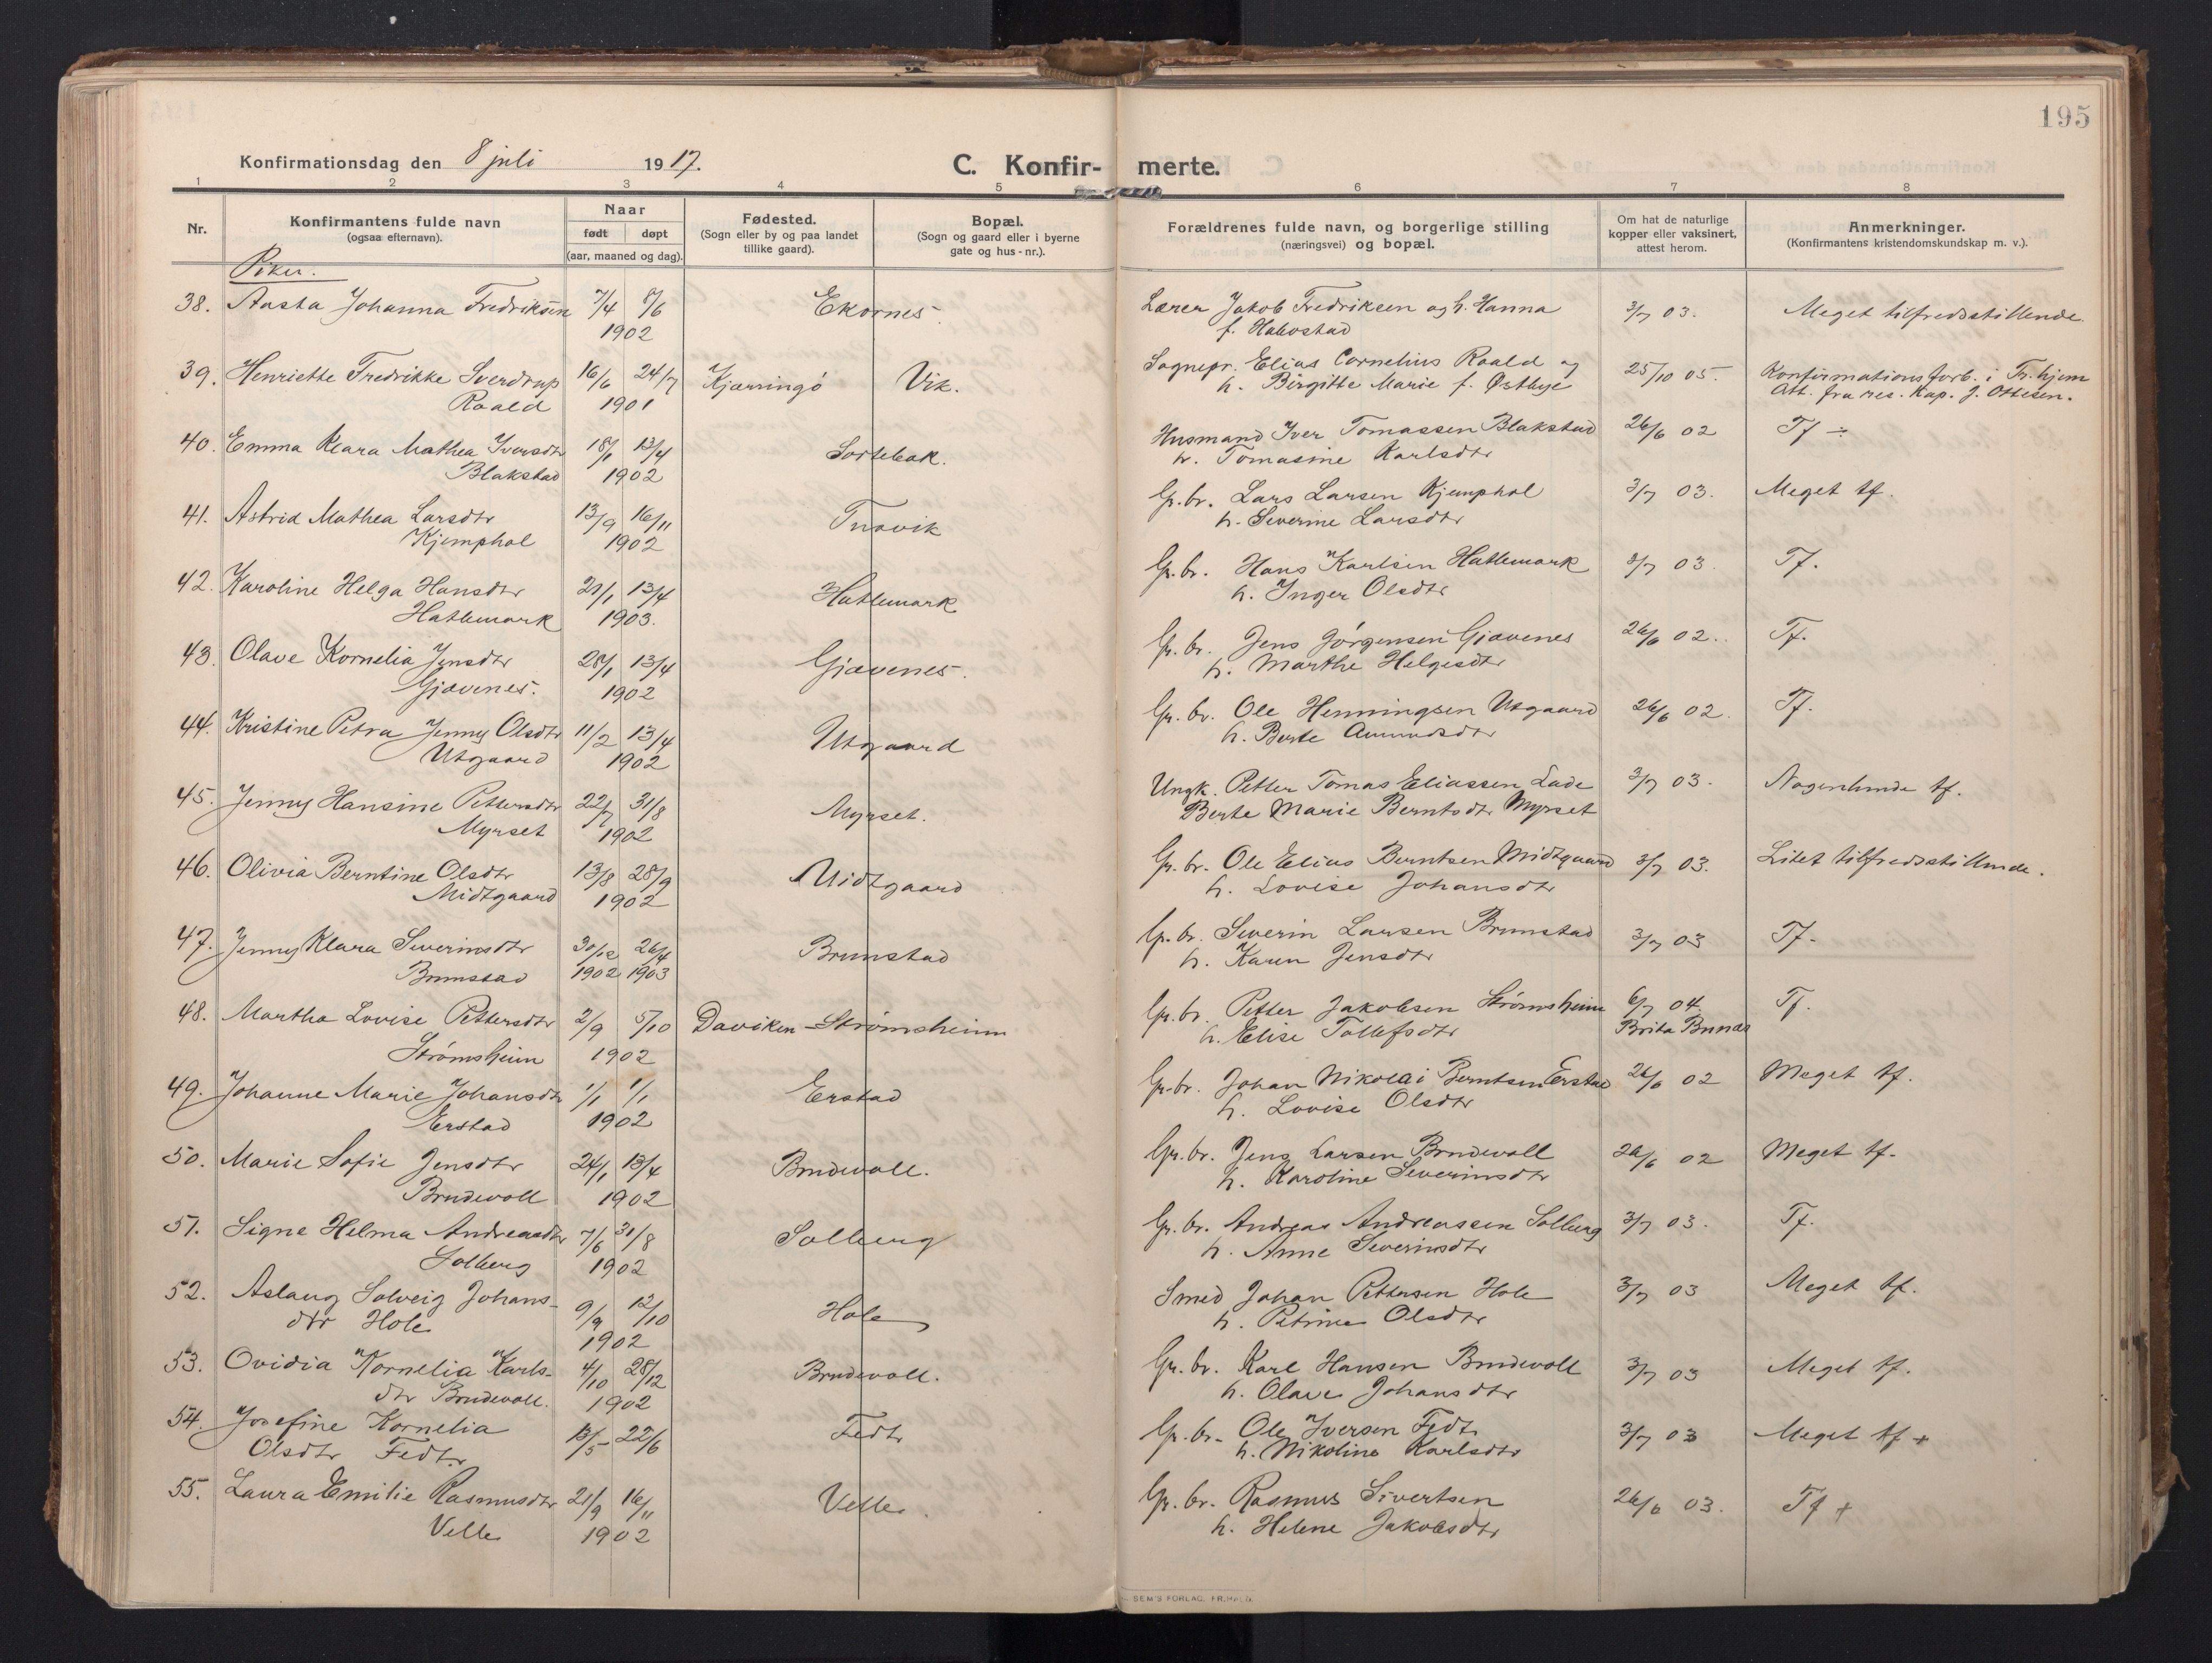 195
Konfirmationsdag den 8 juli 1917. C. Konfir- merte.
1 2 3 4 5 6 7 8
Nr. Konfirmantens fulde navn (ogsaa efternavn). Naar født døpt (aar, maaned og dag). Fødested. (Sogn eller by og paa landet tillike gaard). Bopæl. (Sogn og gaard eller i byerne gate og hus-nr.). Forældrenes fulde navn, og borgerlige stilling (næringsvei) og bopæl. Om hat de naturlige kopper eller vaksinert, attest herom. Anmerkninger. (Konfirmantens kristendomskundskap m. v.).
Piker.
38. Aasta Johanna Fredriksen 7/4 8/6 Ekornes. Lærer Jakob Fredriksen og h. Hanna 3/7 03. Meget tilfredsstillende.
1902 f. Habostad
39. Henriette Fredrikke Sverdrup 16/6 24/7 Kjærringö Vik. Sognepr. Elias Cornelius Roald og 25/10 05. Konfirmationsforb. i Tr.hjem
Roald 1901 h. Birgitte Marie f. Østbye Att. fra res. Kap. J. Ottesen.
40. Emma Klara Mathea Iversdtr 18/1 13/4 Sortebak. Husmand Iver Tomassen Blakstad 26/6 02 Tf ÷
Blakstad 1902 h. Tomasine Karlsdtr
41. Astrid Mathea Larsdtr 13/9 16/11 Tuvik Gr. br. Lars Larsen Kjemphol 3/7 03. Meget tf.
Kjemphol 1902 h. Severine Larsdtr
42. Karoline Helga Hansdtr 21/1 13/4 Hatlemark Gr. br. Hans Karlsen Hatlemark 3/7 03. Tf.
Hatlemark 1903. h. Inger Olsdtr
43. Olave Kornelia Jensdtr 28/1 13/4 Gjævenes. Gr. br. Jens Jørgensen Gjævenes 26/6 02. Tf.
Gjævenes. 1902 h. Marthe Helgesdtr
44. Kristine Petra Jenny Olsdtr 11/2 13/4 Utgaard Gr. br. Ole Henningsen Utgaard 26/6 02. Tf.
Utgaard 1902 h. Berte Amundsdtr
45. Jenny Hansine Pettersdtr 22/7 31/8 Myrset. Ungk. Petter Tomas Eliassen Lade 3/7 03. Nogenlunde tf.
Myrset 1902 Berte Marie Berntsdtr Myrset
46. Olivia Berntine Olsdtr 13/8 28/9 Midtgaard Gr. br. Ole Elias Berntsen Midtgaard 3/7 03. Litet tilfredsstillende.
Midtgaard 1902 h. Lovise Johansdtr
47. Jenny Klara Severinsdtr 30/12 26/4 Brunstad Gr. br. Severin Larsen Brunstad 3/7 03 Tf.
Brunstad 1902 1903 h. Karen Jensdtr
48. Martha Lovise Pettersdtr 2/9 5/10 Daviken Strømsheim Gr. br. Petter Jakobsen Strømsheim 6/7 04 Tf.
Strømsheim 1902 h. Elise Tollefsdtr Brita Bunæs
49. Johanne Marie Johansdtr 1/1 1/1 Erstad Gr. br. Johan Nikolai Berntsen Erstad 26/6 02 Meget tf.
Erstad 1902 h. Lovise Olsdtr
50. Marie Sofie Jensdtr 24/1 13/4 Brudevoll. Gr. br. Jens Larsen Brudevoll 26/6 02 Meget tf.
Brudevoll 1902 h. Karoline Severinsdtr
51. Signe Helma Andreasdtr 7/6 31/8 Solberg Gr. br. Andreas Andreassen Solberg 3/7 03. Tf.
Solberg 1902 h. Anne Severinsdtr
52. Aslaug Solveig Johans- 9/9 12/10 Hole Smed Johan Pettersen Hole 3/7 03 Meget tf.
dtr Hole 1902 h. Petrine Olsdtr
53. Ovidia Kornelia Karls- 4/10 28/12 Brudevoll. Gr. br. Karl Hansen Brudevoll 3/7 03 Meget tf.
dtr Brudevoll. 1902 h. Olave Johansdtr
54. Josefine Kornelia 13/5 22/6 Fedt Gr. br. Ole Iversen Fedt 3/7 03 Meget tf +
Olsdtr Fedt. h. Nikoline Karlsdtr
55. Laura Emilie Rasmusdtr 21/9 16/11 Velle. Gr. br. Rasmus Sivertsen 26/6 03. Tf +
Velle 1902 h. Helene Jakobsdtr
SEM'S FORLAG, FR.HALD.